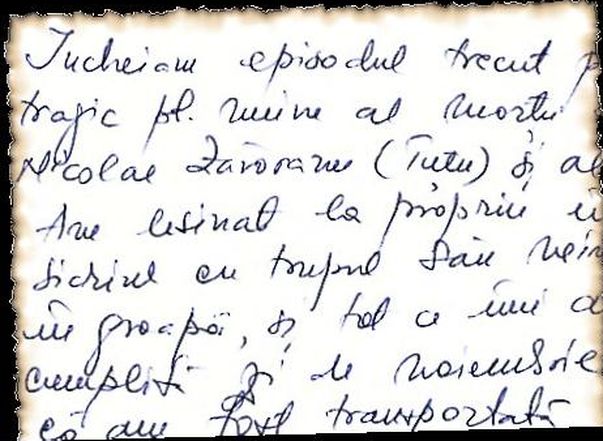 Încheiam episodul trecut
tragic pt. mine al morții
Nicolae Zăvoranu (Tutu) și al
Am leșinat la propriu
sicriul cu trupul său
în groapă, și tot ce îmi
cumplită zi de noiembrie
că am fost transportată